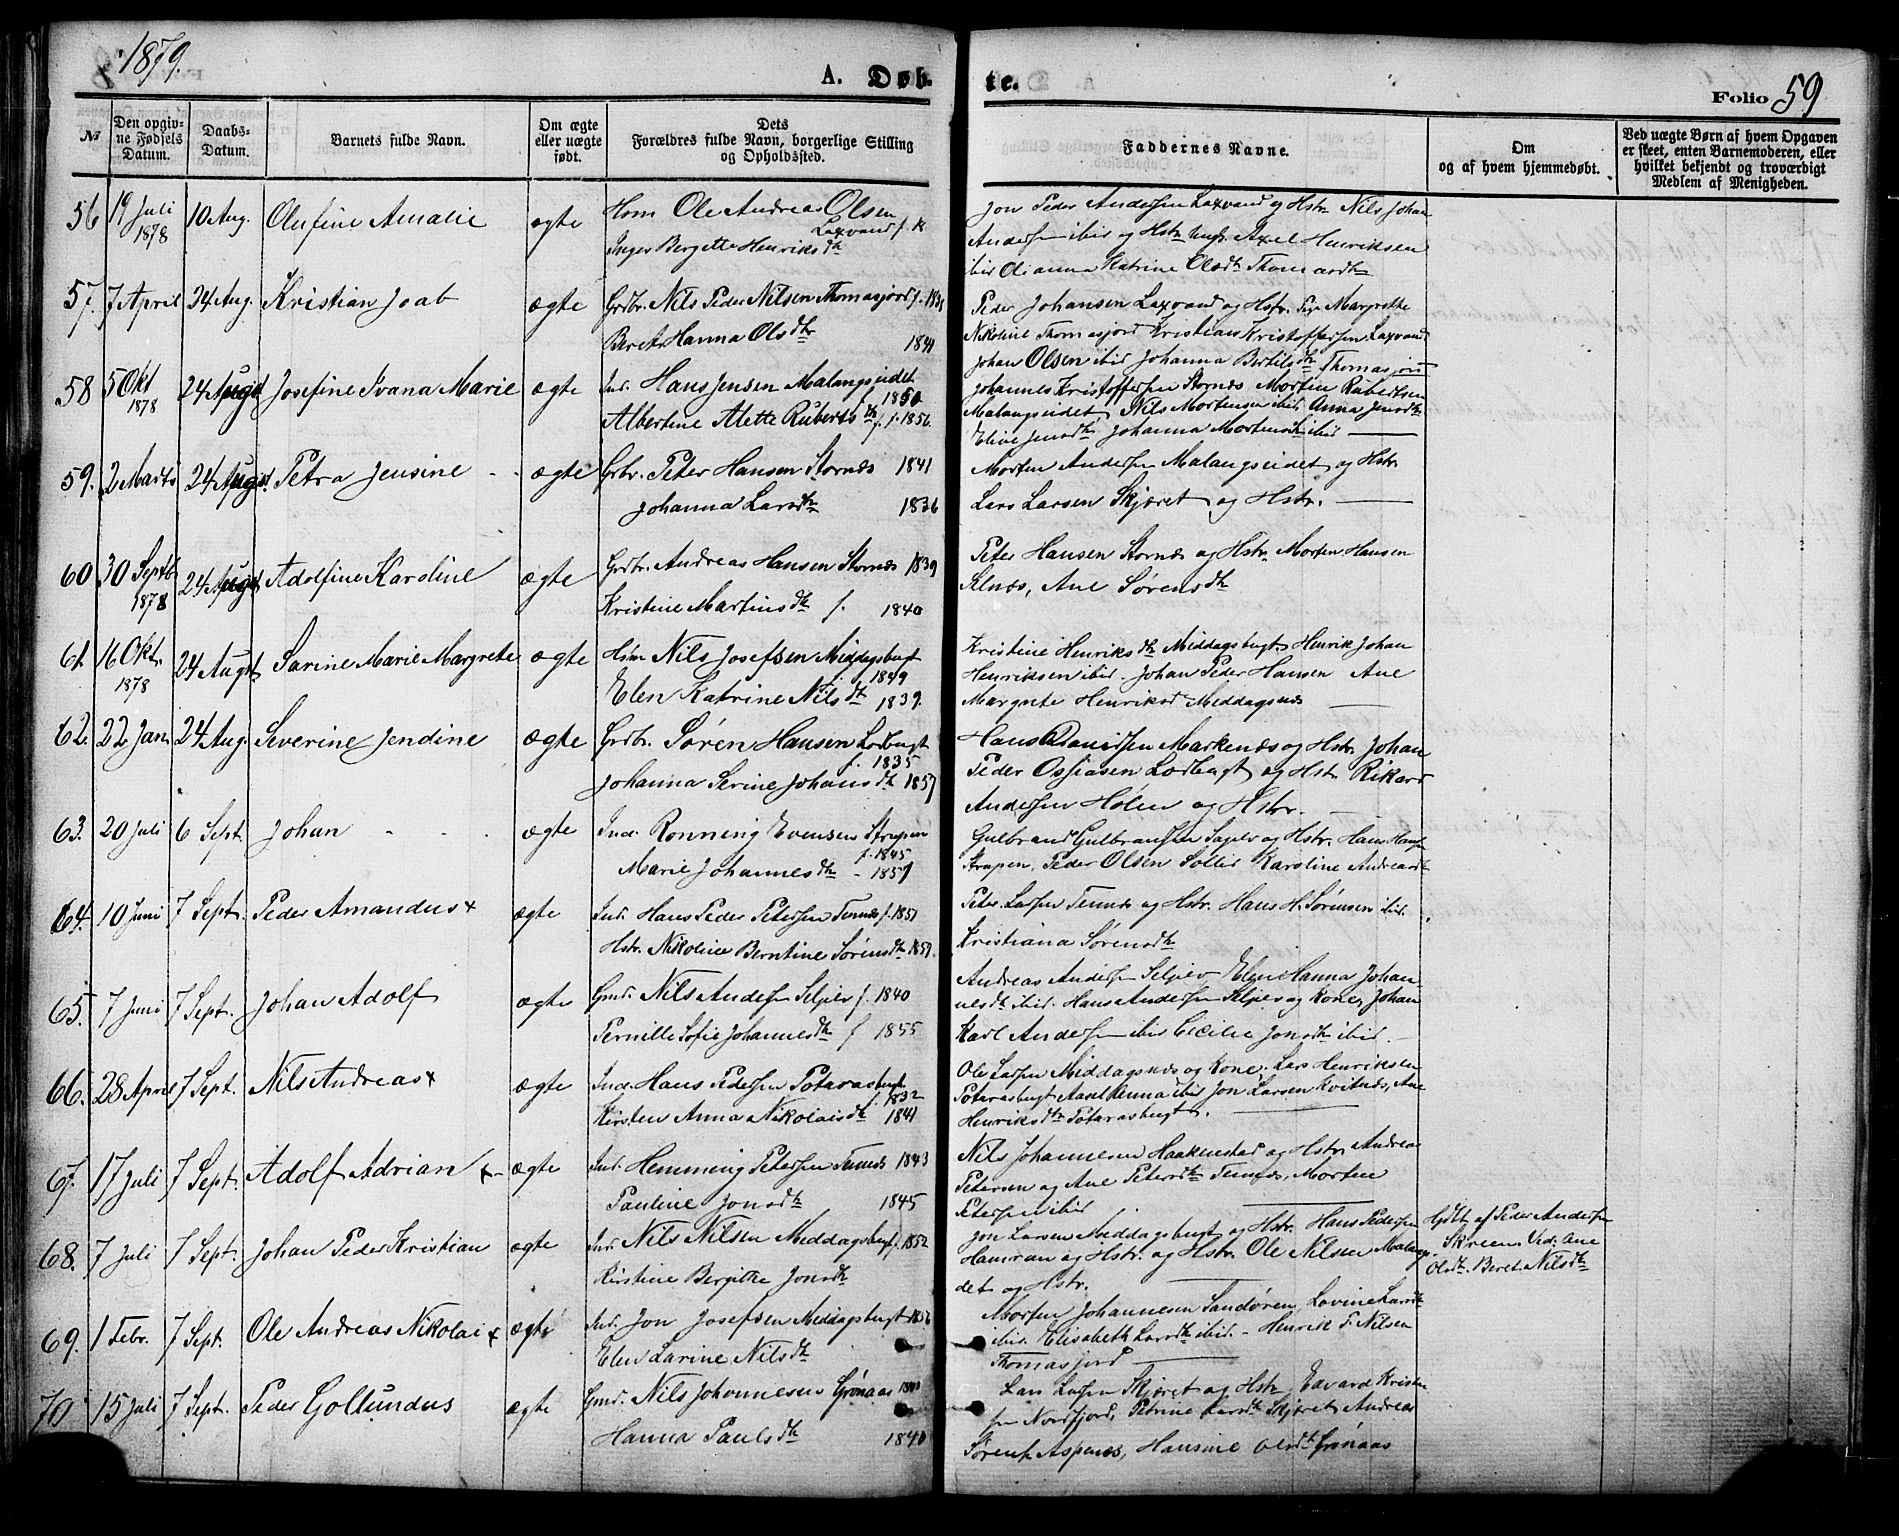 1879.
A. Døb-
te.
Folio 59
No
Den opgiv-
ne Fødsels
Datum.
Daabs-
Datum.
Barnets fulde Navn.
Om ægte
eller uægte
født.
Dets
Forældres fulde Navn, borgerlige Stilling
og Opholdssted.
Faddernes Navne.
Om
og af hvem hjemmedøbt.
Ved uægte Børn af hvem Opgaven
er skeet, enten Barnemoderen, eller
hvilket bekjendt og troværdigt
Medlem af Menigheden.
56 19 Juli 1878 10 Aug. Olufine Amalie ægte
Hsm Ole Andreas Olsen
Laxvand f.
Inger Bergette Henriksdtr
Jon Peder Andersen Laxvand og Hstr Nils Johan
Andersen ibid og Hstr Axel Henriksen
ibid Katrine Olsdtr
57. 7 April 24 Aug. Kristian Joab ægte
Grdbr. Nils Peder Nilsen Thomasjord f.
Beret Hanna Olsdtr 1841
Peder Johansen Laxvand og Hstr. Margrethe
Nikoline Thomasjord Kristian Kristoffersen Laxvand
Johan Olsen ibid Johanna Bertilsdtr Thomasjord
58 5 Okt 1878 24 Augst Josefine Ivana Marie ægte
Ind. Hans Jensen Malangseidet
f. 1850
Albertine Alette Rubertsdtr f. 1856.
Johannes Kristoffersen Stornæs Morten Rubertsen
Malangseidet, Nils Mortensen ibid Anna Jensdtr
Jensdtr, Johanna Mortensdtr ibid
59. 2 Marts 24 Augst. Petra Jensine ægte
Grbr. Peter Hansen Stornæs 1841
Johanna Larsdtr 1836
Morten Andersen Malangseidet og Hstr.
Lars Larsen Skjæret og Hstr.
60 30 Septb 1878 24 Augst Adolfine Karoline ægte
Grdbr. Andreas Hansen Stornæs 1839
Kristine Martinsdtr f. 1840
Peter Hansen Stornæs og Hstr. Morten Hansen
Ane Sørensdtr
61. 16 Okt. 1878 24 Augst. Sarine Marie Margrete ægte
Hsm Nils Josefsen Middagsbugt
1849
Elen Katrine Nilsdtr 1839.
Kristine Henriksdtr Middagsbugt. Henrik Johan
Henriksen ibid. Johan Peder Hansen Ane
Margrete Henriksd Middagsnæs
62. 22 Jan. 24 Aug. Severine Jendine ægte
Grdbr. Søren Hansen Lodbugt
f. 1835
Johanna Serine Johansdtr 1857
Hans Danielsen Markenæs og Hstr. Johan
Peder Ossiasen Lodbugt og Hstr Rikard
Andersen Holen og Hstr.
63. 20 Juli 6 Sept. Johan ægte
Ind. Rønning Evensen Strupen
f. 1845
Marie Johannesdtr - 1857
Gulbrand Gulbrandsen Sagelv og Hstr. Hans
Strupen, Peder Olsen Sollid Karoline Andreasdtr
64. 10 Juni 7 Sept. Peder Amandus + ægte
Ind. Hans Peder Petersen Tennes f. 1851
Hstr. Nikoline Berntine Sørensdtr 1851.
Peter Larsen Tennes og Hstr. Hans H. Sørensen ibid.
Kristiana Sørensdtr
65. 7 Juni 7 Sept. Johan Adolf ægte
Gmd. Nils Andersen Seljelv f. 1840
Pernille Sofie Johannesdtr f 1855
Andreas Andersen Seljelv Elen Hanna Johan-
nesdtr ibid. Hans Andersen Seljelv og Kone, Johan
Karl Andersen ibid Cecilie Jonsdtr ibid.
66. 28 April 7 Sept. Nils Andreas + ægte
Ind. Hans Pedersen Potarasbugt
f. 1832
Kirsten Anna Nikolaisdtr 1841
Ole Larsen Middagsnæs og Kone. Lars Henriksen
Potarasbugt Anna ibid Jon Larsen Kvitnæs, Ane
Henriksdtr Potarasbugt.
67. 17 Juli 7 Sept. Adolf Adrian + ægte
Ind. Hemming Petersen Tennes 1843
Pauline Jonsdtr 1845
Nils Johannesen Haakenstad og Hstr Andreas
Petersen og Ane Petersdtr Tennes, Morten
Petersen ibid
68. 7 Juli 7 Sept. Johan Peder Kristian ægte
Ind. Nils Nilsen Middagsbugt f. 1852
Kirstine Bergitte Jonsdtr
Jon Larsen Middagsbugt og Hstr. Hans Pedersen
Hamran og Hstr. og Hstr Ole Nilsen Malangs-
det og Hstr.
Hjdbt af Peder Andersen
Skreen. Vid: Ane
Olsdtr. Beret Nilsdtr
69. 1 Febr. 7 Sept. Ole Andreas Nikolai + ægte
Ind. Jon Josefsen Middagsbugt 1856
Elen Larine Nilsdtr
Morten Johannesen Sandøren, Lovine Larsdtr
ibid. Elisabeth Larsdtr ibid. - Henrik P. Nilsen
Thomasjord
70 15 Juli 7 Sept. Peder Gollundus ægte
Gmd. Nils Johannesen Grønaas
Hanna Paulsdtr 1840
Lars Larsen Skjæret og Hstr Edvard Kristen-
sen Nordfjord, Petrine Larsdtr Skjæret Andreas
Sørens. Aspenæs, Hansine Olsdtr Grønaas